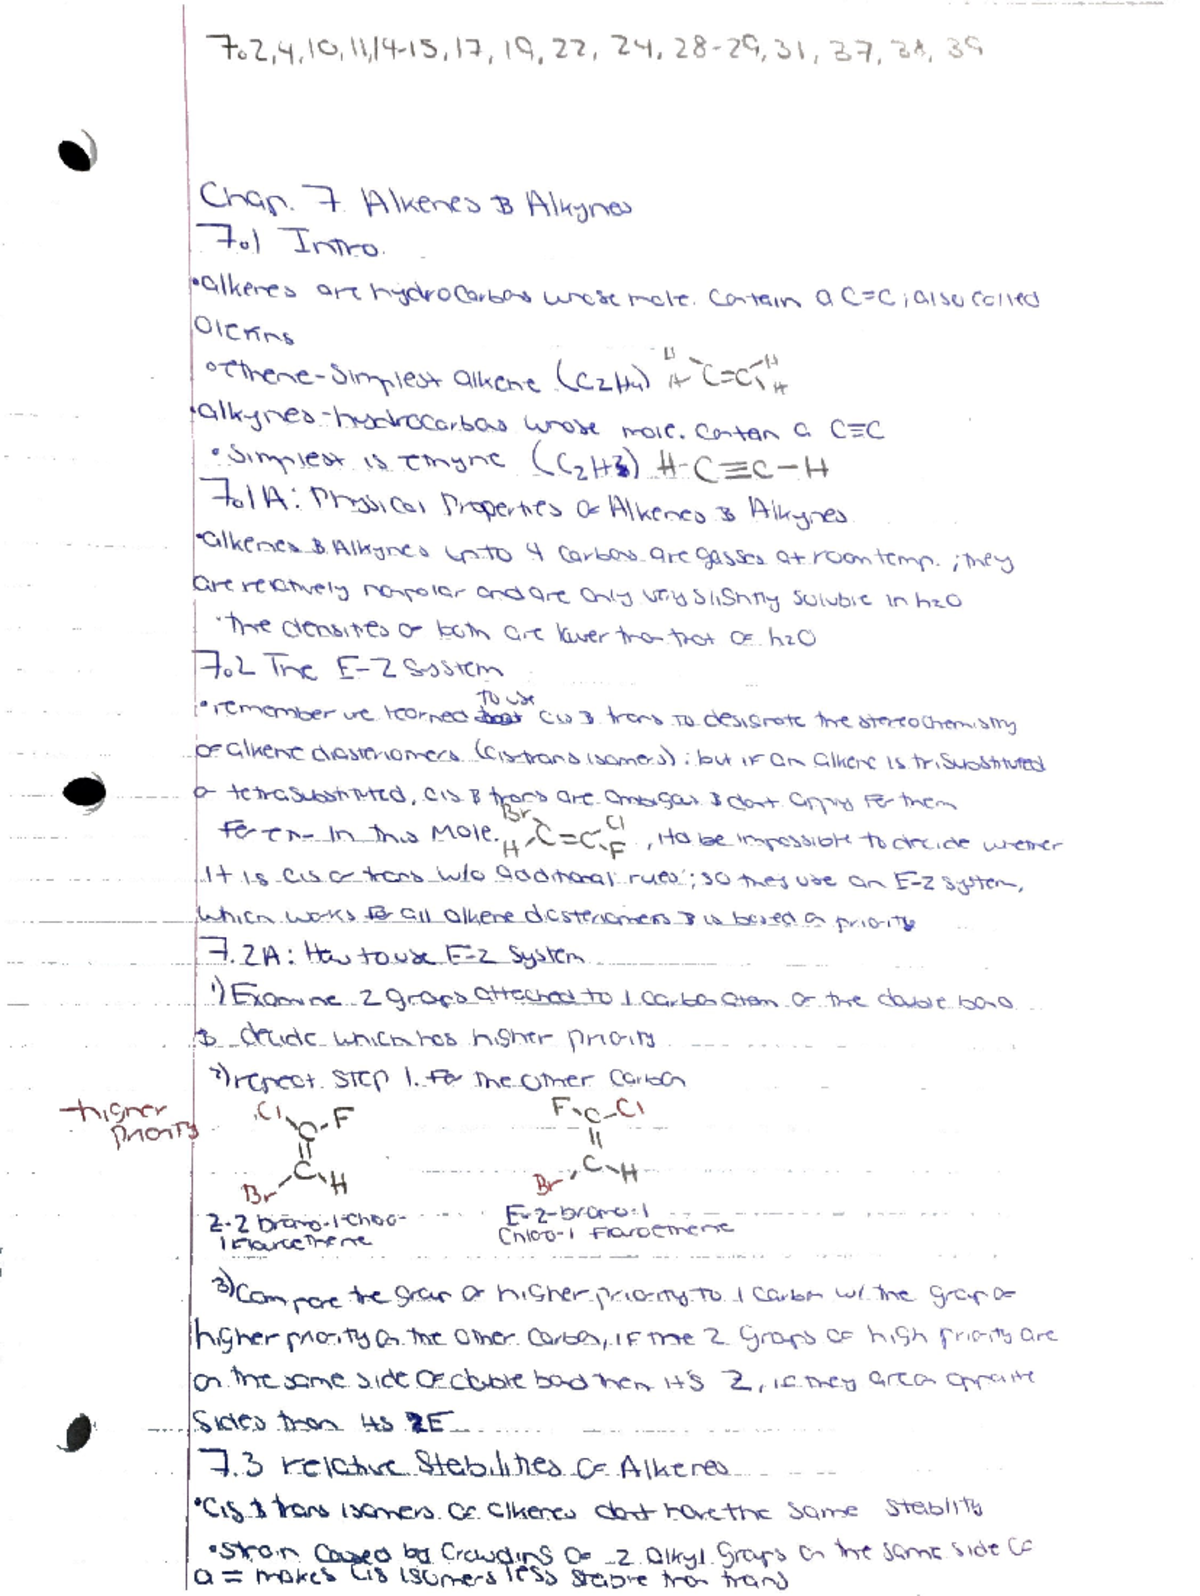 7.2,4,10,11,14-15,17,19,22,24,28-29,31,37,38,39
Chap. 7 Alkenes & Alkynes
7.1 Intro.
•alkenes are hydrocarbons whose mole. contain a C=C; also called
Olefins
•Ethene-Simplest alkene (C2H4) H H C=C H H
•alkynes-hydrocarbons whose mole. contain a C≡C
•Simplest is Ethyne (C2H2) H-C≡C-H
7.1A: Physical Properties of Alkenes & Alkynes
•alkenes & Alkynes up to 4 carbons are gasses at room temp.; they
are relatively nonpolar and are only very slightly soluble in h2O
•the densities of both are lower than that of h2O
7.2 The E-Z System
•remember we learned to use cis & trans to designate the stereochemistry
of alkene diasteriomers (cis trans isomers); but if an alkene is trisubstituted
or tetrasubstituted, cis & trans are ambigous & dont apply for them
for ex- in this mole. Br H C=C Cl F, itd be impossible to decide wether
it is cis or trans w/o additional rules; so they use an E-Z system,
which works for all alkene diasteriomers & is based on priority
7.2A: How to use E-Z System
1) Examine 2 groups attached to 1 carbon atom of the double bond
& decide which has higher priority
2) repeat STEP 1. for the other carbon
higher
priority
Cl C F
C
Br H
F C Cl
C
Br H
Z-2 bromo-1-chloro-
1 Flouroethene
E-2-bromo-1
Chloro-1 flouroethene
3) Compare the group of higher priority to 1 carbon w/ the group of
higher priority on the other carbon, if the 2 groups of high priority are
on the same side of double bond then its Z, if they are on opposite
Sides then its E
7.3 relative Stabilities of Alkenes
•Cis & trans isomers of alkenes dont have the same stability
•strain caused by crowding of 2 alkyl groups on the same side of
a = makes cis isomers less stable than trans